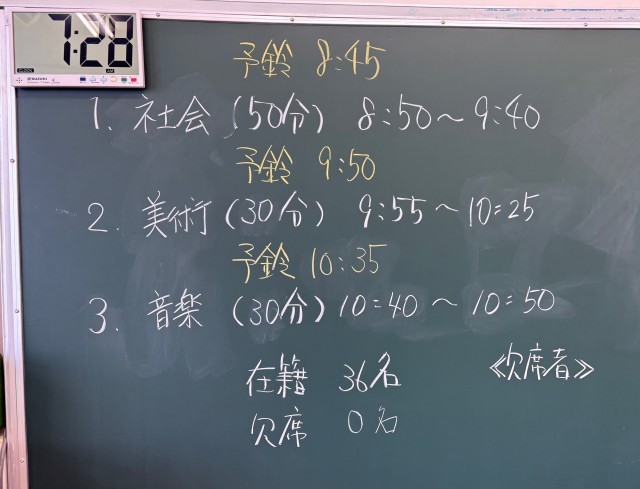 7:28
予鈴 8:45
1. 社会 (50分) 8:50〜9:40
予鈴 9:50
2. 美術 (30分) 9:55〜10:25
予鈴 10:35
3. 音楽 (30分) 10:40〜10:50
在籍 36名 《欠席者》
欠席 0名